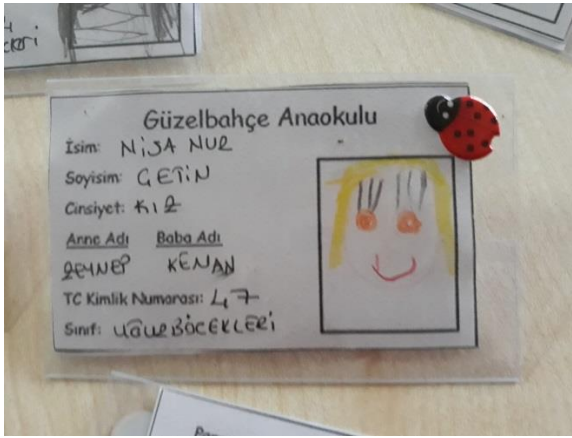 Güzelbahçe Anaokulu
İsim: NİSA NUR
Soyisim: ÇETİN
Cinsiyet: KIZ
Anne Adı Baba Adı
ZEYNEP KENAN
TC Kimlik Numarası: 47
Sınıf: UĞUR BÖCEKLERİ